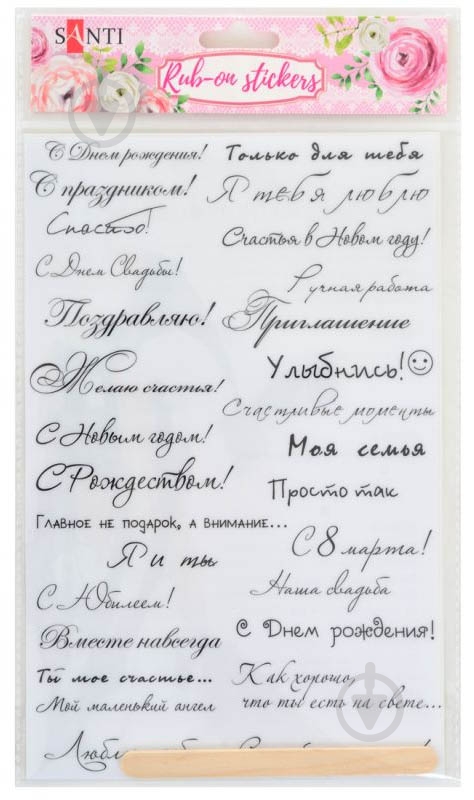 SANTI
Rub-on stickers
С Днем рождения!
Только для тебя
С праздником!
Я тебя люблю
Спасибо!
Счастья в Новом году!
С Днем Свадьбы!
Ручная работа
Поздравляю!
Приглашение
Желаю счастья!
Улыбнись!
Счастливые моменты
С Новым годом!
Моя семья
С Рождеством!
Просто так
Главное не подарок, а внимание...
Я и ты
С 8 марта!
С Юбилеем!
Наша свадьба
Вместе навсегда
С Днем рождения!
Ты мое счастье...
Как хорошо,
что ты есть на свете...
Мой маленький ангел